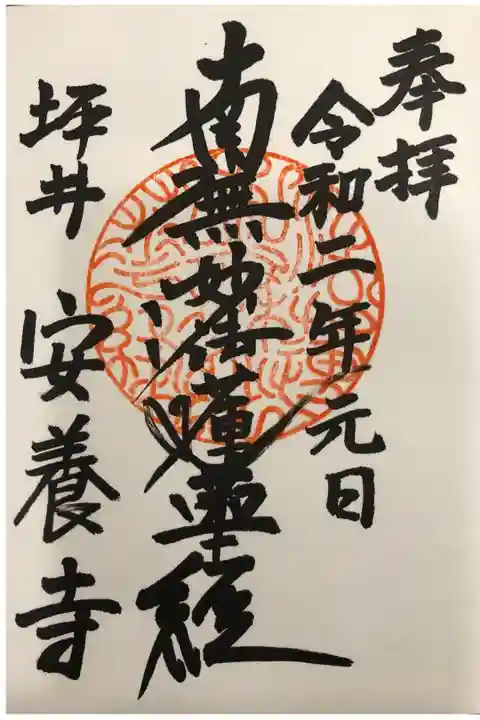 奉拝
令和二年元日
南無妙法蓮華経
坪井 安養寺